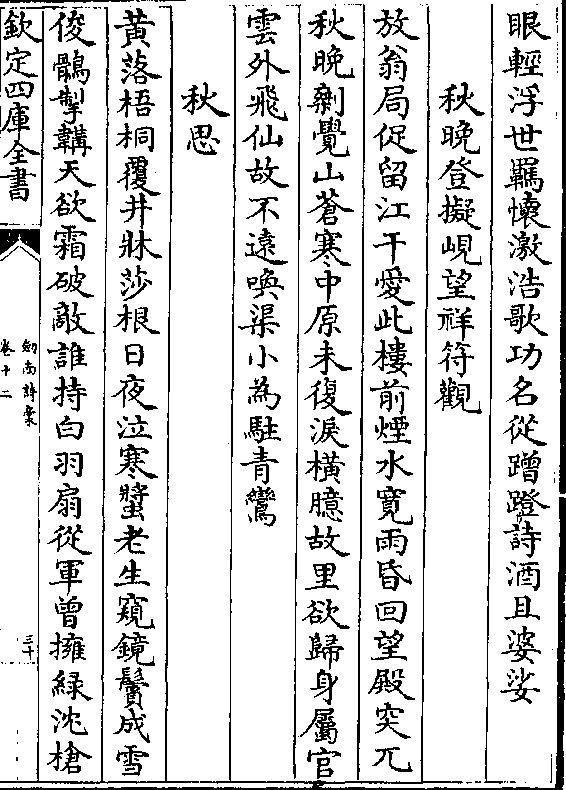 眼輕浮世羈懷激浩歌功名從蹭蹬詩酒且婆娑
秋晩登擬峴望祥符觀
放翁局促留江干愛此樓前煙水寛雨昏回望殿突兀
秋晩剩覺山蒼寒中原未復淚橫臆故里欲歸身屬官
雲外飛仙故不遠喚渠小為駐青鸞
秋思
黃落梧桐覆井牀莎根日夜泣寒螿老生窺鏡鬢成雪
俊鶻掣鞲天欲霜破敵誰持白羽扇從軍曽擁緑沈槍
欽定四庫全書
劒南詩槀
卷十二
三十